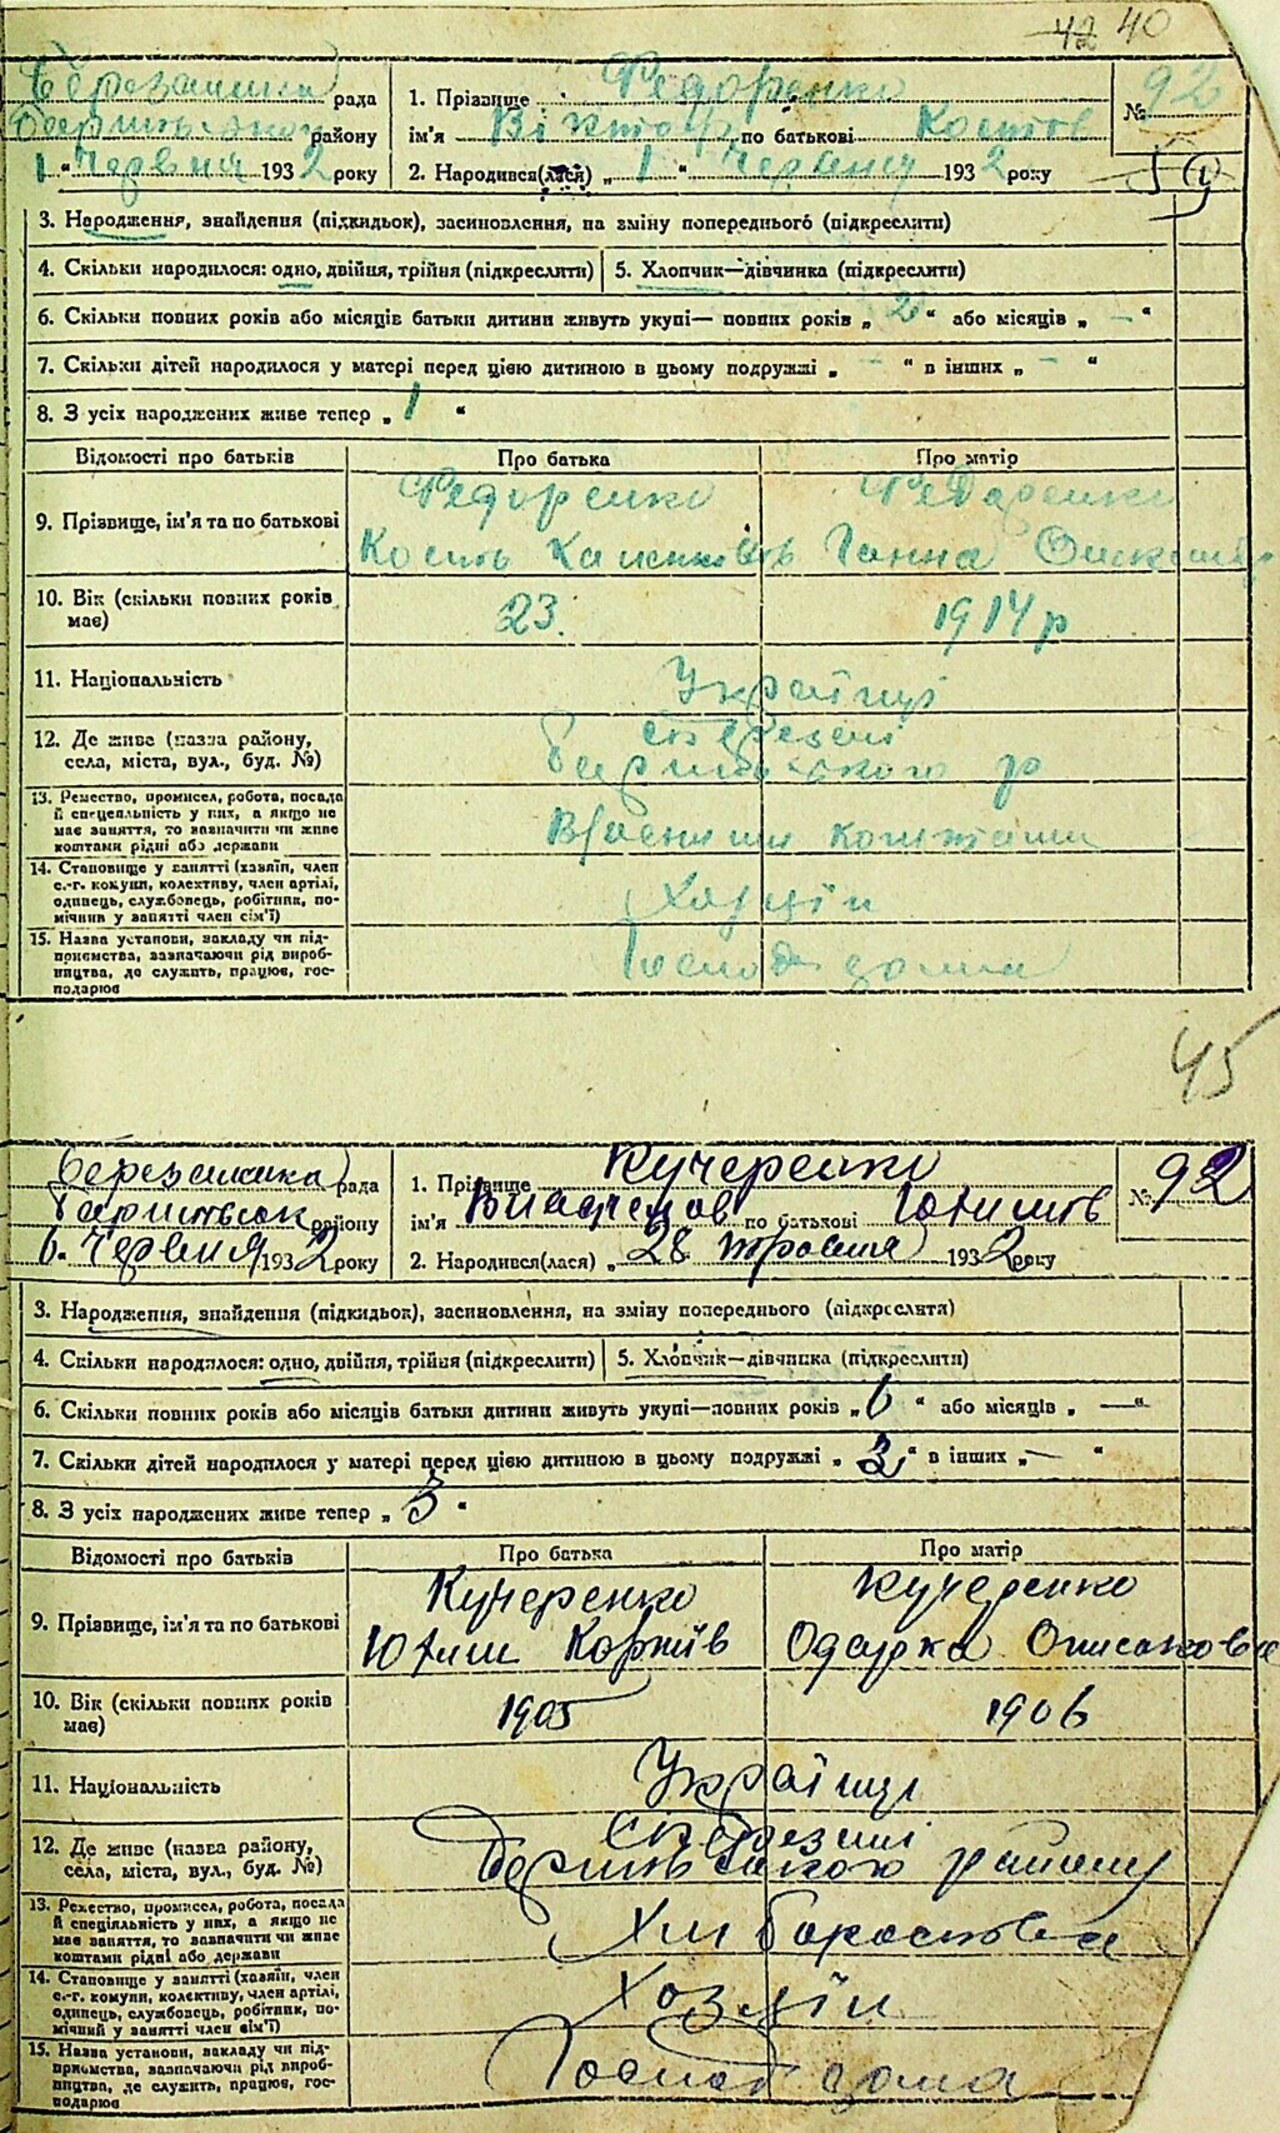 42 40
Березанська рада
Баришівськ району
1 " Червня 1932 року
1. Прізвище Федоренко
ім'я Віктор по батькові Костів
2. Народився(лася) „ 1 " Червня 1932 року
№ 92
3. Народження, знайдення (підкидьок), засиновлення, на зміну попереднього (підкреслити)
4. Скільки народилося: одно, двійня, трійня (підкреслити) 5. Хлопчик—дівчинка (підкреслити)
6. Скільки повних років або місяців батьки дитини живуть укупі— повних років „ 2 " або місяців „ — "
7. Скільки дітей народилося у матері перед цією дитиною в цьому подружжі „ — " в інших „ — "
8. З усіх народжених живе тепер „ 1 "
Відомості про батьків Про батька Про матір
9. Прізвище, ім'я та по батькові
Федоренко
Кость
Федоренко
Ганна
10. Вік (скільки повних років має)
23.
1914 р
11. Національність
Українці
12. Де живе (назва району, села, міста, вул., буд. №)
с Березані
Баришівського р
13. Ремество, промисел, робота, посада
й спеціальність у них, а якщо не
має заняття, то зазначити чи живе
коштами рідні або держави
Власними коштами
14. Становище у занятті (хазяїн, член
с.-г. комуни, колективу, член артілі,
одинець, службовець, робітник, по-
мічник у занятті член сім'ї)
Хазяїн
15. Назва установи, закладу чи під-
приємства, зазначаючи рід вироб-
ництва, де служить, працює, гос-
подарює
Господ дома
45
Березанська рада
Баришівськ району
6. Червня 1932 року
1. Прізвище Кучеренко
ім'я Виачеслов по батькові Юхимів
2. Народився(лася) „ 28 травня 1932 року
№ 92
3. Народження, знайдення (підкидьок), засиновлення, на зміну попереднього (підкреслити)
4. Скільки народилося: одно, двійня, трійня (підкреслити) 5. Хлопчик—дівчинка (підкреслити)
6. Скільки повних років або місяців батьки дитини живуть укупі—повних років „ 6 " або місяців „ — "
7. Скільки дітей народилося у матері перед цією дитиною в цьому подружжі „ 3 " в інших „ — "
8. З усіх народжених живе тепер „ 3 "
Відомості про батьків Про батька Про матір
9. Прізвище, ім'я та по батькові
Кучеренко
Юхим Корніїв
Кучеренко
Одарка
10. Вік (скільки повних років має)
1905
1906
11. Національність
Українці
12. Де живе (назва району, села, міста, вул., буд. №)
с Березані
Баришівського району
13. Ремество, промисел, робота, посада
й спеціяльність у них, а якщо не
має заняття, то зазначити чи живе
коштами рідні або держави
Хліборобства
14. Становище у занятті (хазяїн, член
с.-г. комуни, колективу, член артілі,
одинець, службовець, робітник, по-
мічний у занятті член сім'ї)
Хозяїн
15. Назва установи, закладу чи під-
приємства, зазначаючи рід вироб-
ництва, де служить, працює, гос-
подарює
Господ дома